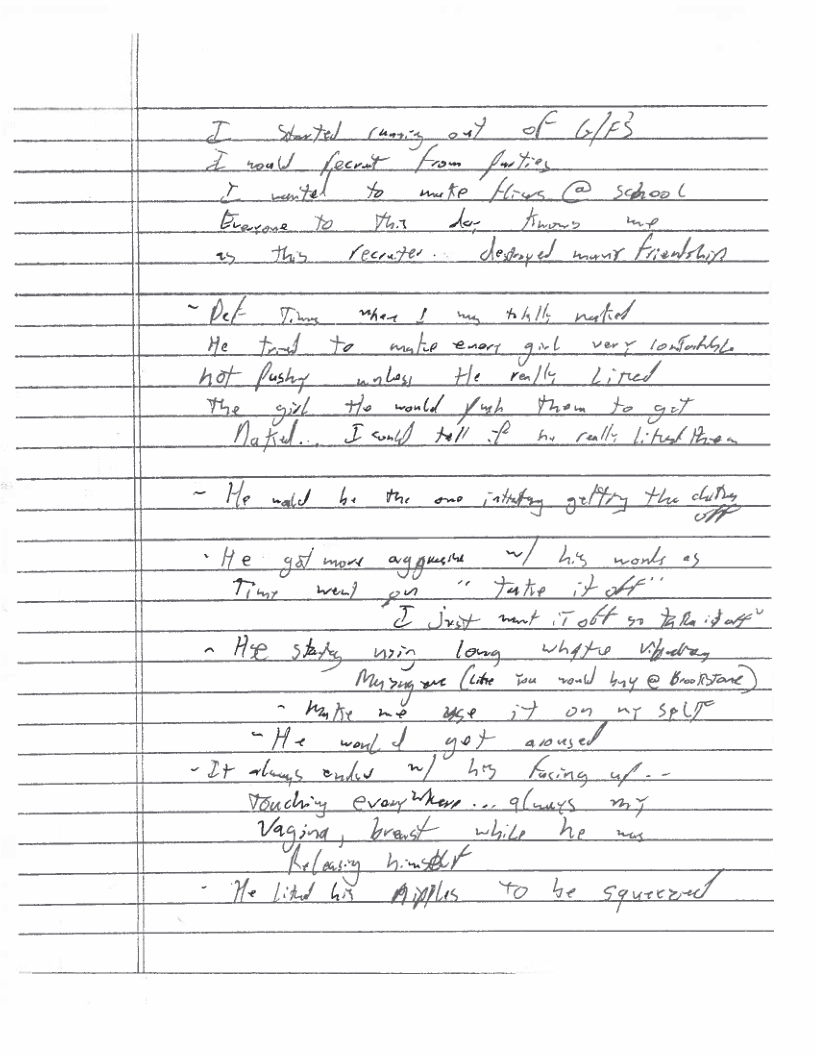 I started running out of G/F's
I would recruit from parties
I wanted to make friends @ school
Everyone to this day knows me
as this recruiter.. destroyed many friendships
- Def Times where I was totally naked
He tried to make every girl very comfortable
not pushy unless He really Liked
The girl He would push them to get
Naked... I could tell if he really liked them
- He would be the one initiating getting the clothes
off
- He got more aggressive w/ his words as
Time went on "take it off"
I just want it off so take it off"
- He starts using long white vibrating
Massager (Like you would buy @ Brookstone)
- Make me use it on my self
- He would get aroused
- It always ended w/ his facing up..
Touching everywhere... always my
Vagina, breast while he was
Releasing himself
- He liked his Nipples to be squeezed